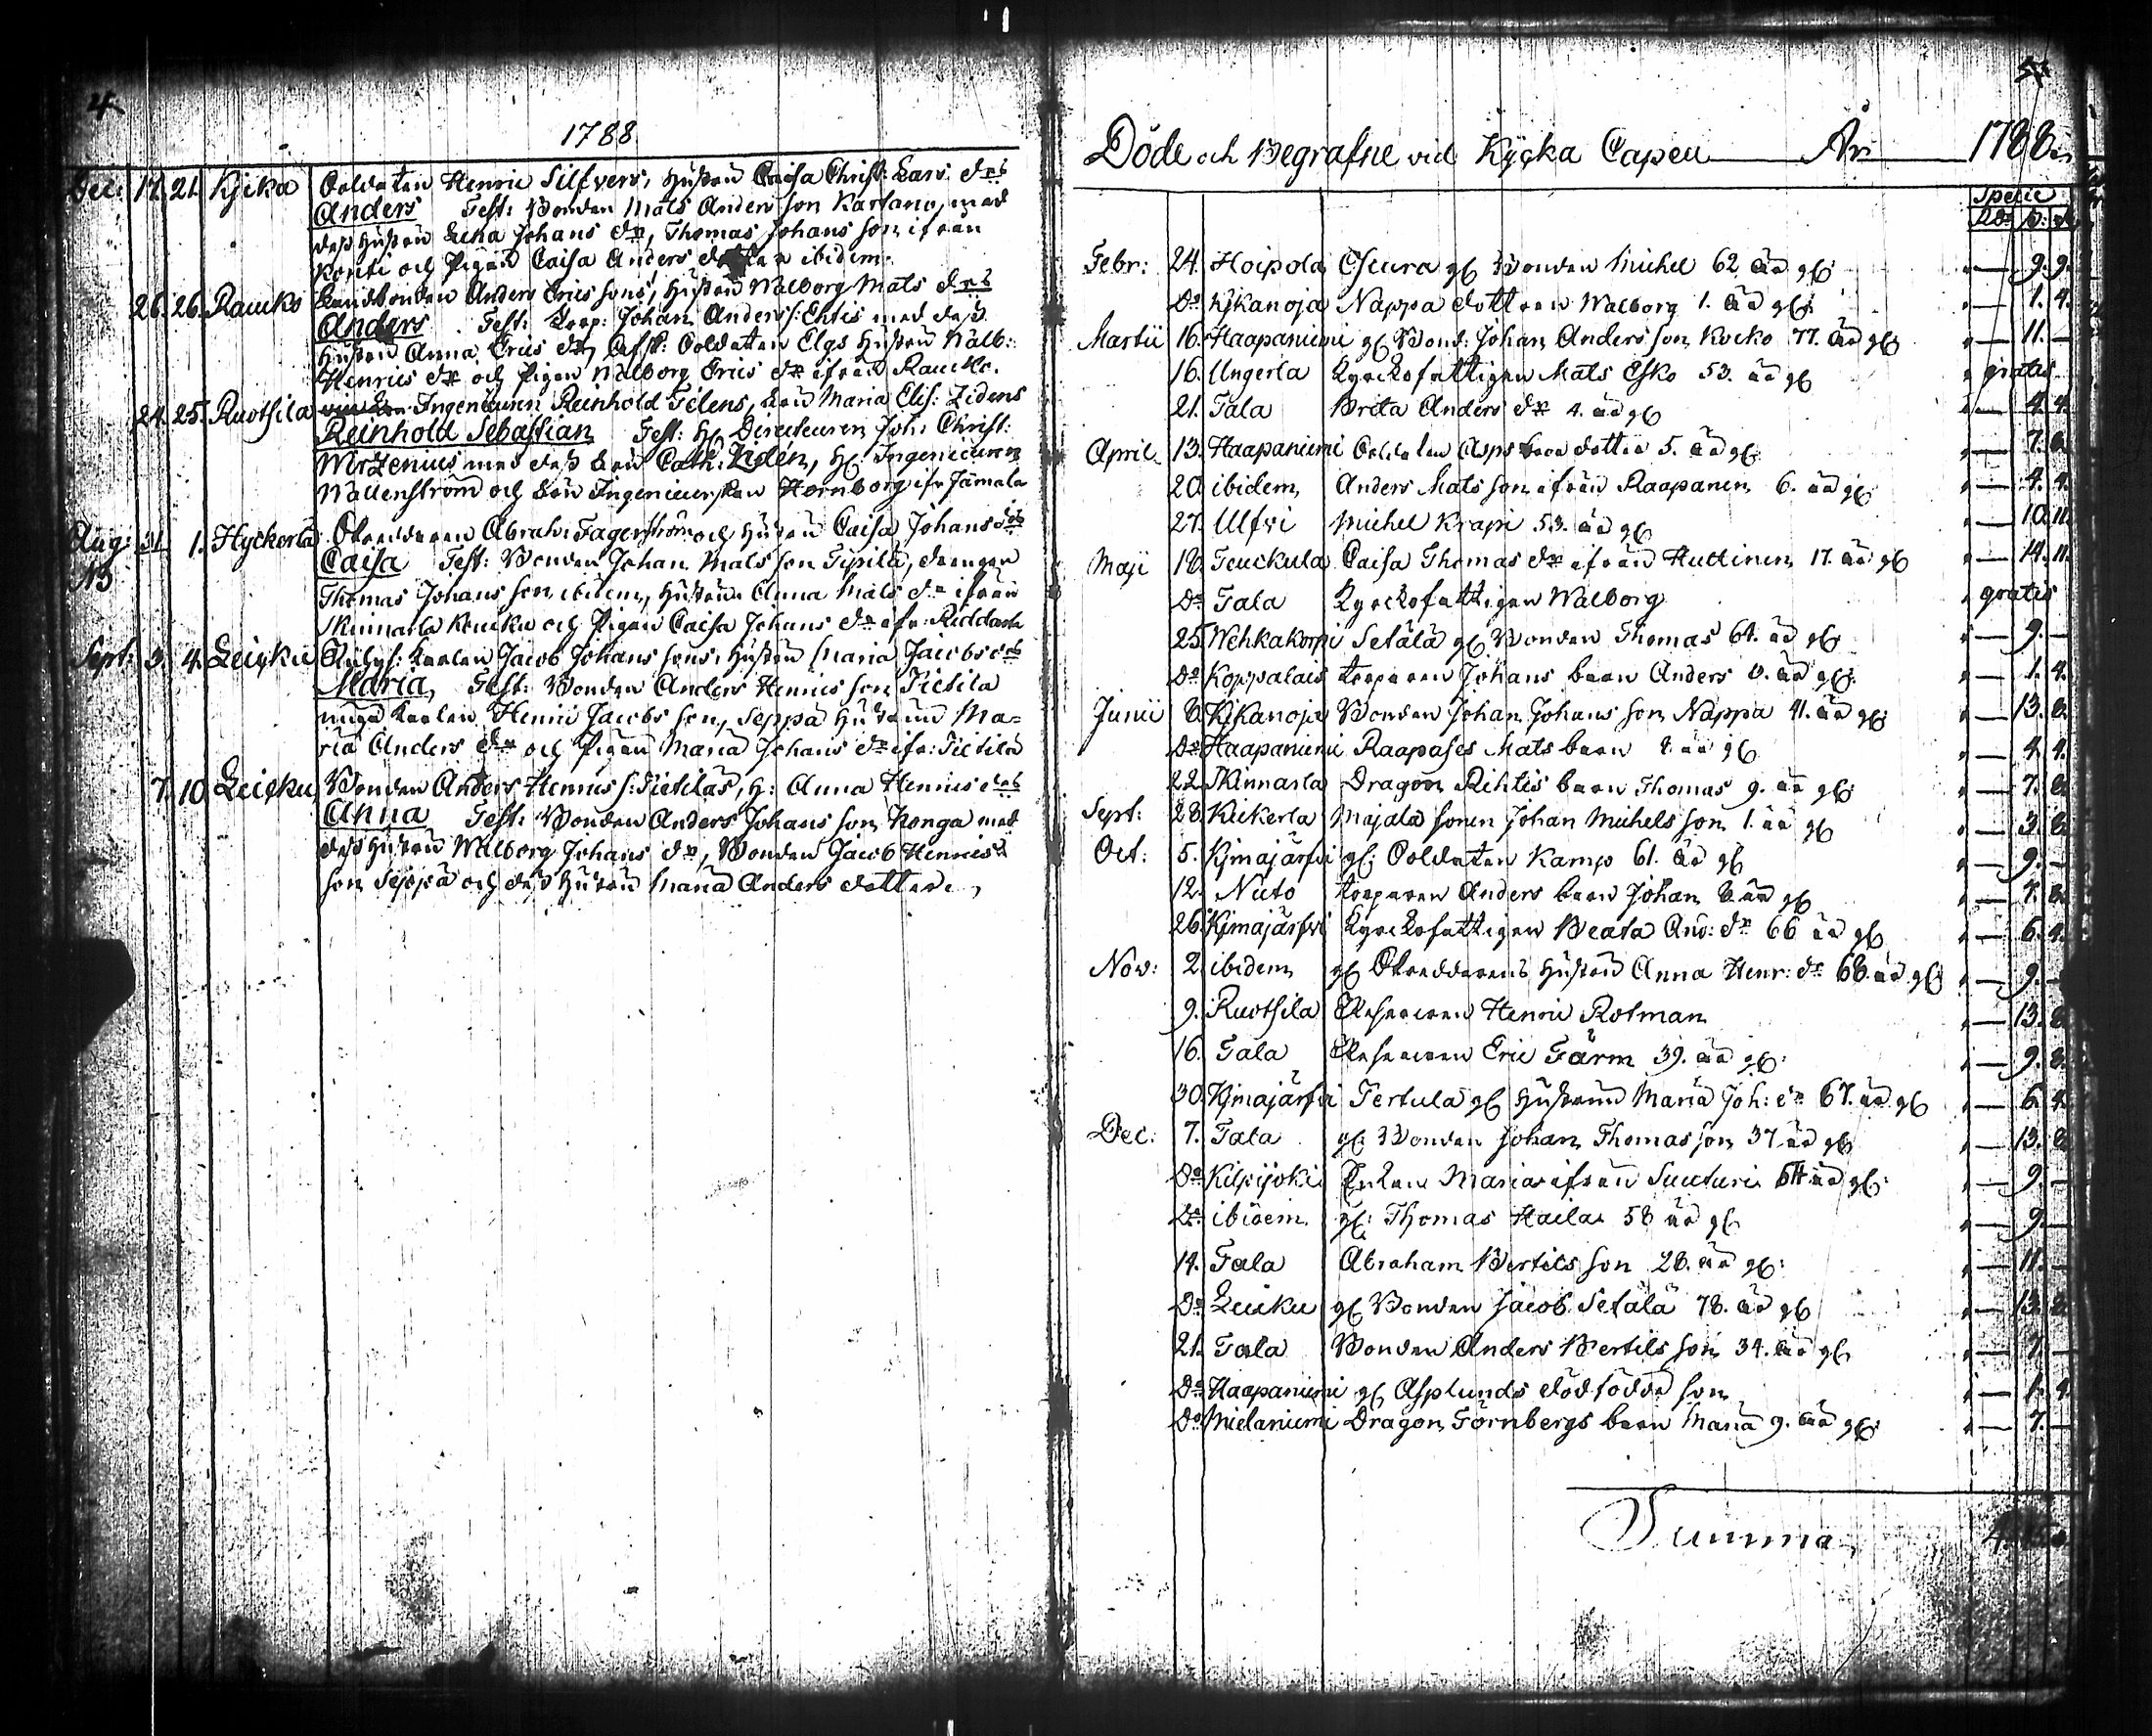 4.
1788
Dec: 17. 21. Kjika Soldaten Henric Silfvers, Hustrun Caisa Christ: Lars drs
Anders Test: Bonden Mats Anders son Kartano, med
dess Hustru Lena Johans dr, Thomas Johans son ifrån
och Pigan Caisa Anders ibidem.
26. 26. Raucko Landbonden Anders Erics sons, Hustrun Walborg Mats drs
Anders Test: Torp: Johan Anders s: Ehtis med dess
Hustru Anna Erics dr, Soldaten Elgs Hustru Walb:
Henrics dr och Pigan Walborg Erics dr ifrån Raucko.
24. 25. Ruotsila Ingenieuren Reinhold Telens, Maria Elis: Zidens
Reinhold Sebastian Test: H Directeuren Joh: Christ:
Wirzenius med dess Cath: Ziden, H: Ingenieuren
Wallenström och Ingenieurskan Hornborg ifr Jämälä
Aug: 31. 1. Hyckerla Skreddaren Abrah: Fagerström och Hustru Caisa Johans drs
NB Caisa Test: Bonden Johan Mats son Tipila, drengen
Thomas Johans son ibidem, Hustrun Anna Mats dr ifrån
Skinnarla och Pigan Caisa Johans dr ifr:
Sept: 3. 4. Leicku Karlen Jacob Johans sons, Hustru Maria Jacobs drs
Maria, Test: Bonden Anders Henrics son Pietilä
unga Karlen Henric Jacobs son, Seppä Hustrun Ma=
ria Anders dr och Pigan Maria Johans dr ifr: Pietilä
7. 10. Leicku, Bonden Anders Henrics s: Pietiläs, H: Anna Henrics drs
Anna Test: Bonden Anders Johans son Honga med
dess Hustru Walborg Johans dr, Bonden Jacob Henrics
son Seppä och dess Hustru Maria Anders dotter.
Döde och Begrafne vid Kjcka Capell År 1788.
Specie
Rdr s:
Febr: 24. Hoipola gl Bonden Michel 62. år gl: 9. 9.
Do Kjkanoja Nappa dottren Walborg 1. år gl: 1. 4.
Martii 16. Haapaniemi gl Bond: Johan Anders son Kocko 77. år gl: 11. —
16. Ungerla Kyrckofattigen Mats Esko 53. år gl gratis
21. Tala Brita Anders dr 4. år gl 4. 4.
April. 13. Haapaniemi Soldaten Asps dotter 5. år gl: 7. 8.
20. ibidem Anders Mats son ifrån Raapanen 6. år gl: 4. 4.
27. Ulfvi Michel Krapi 53. år gl 10. 11.
Maji 18. Teuckula Caisa Thomas dr ifrån Huttinen 17. år gl 14. 11.
Do Tala Kyrckofattigen Walborg gratis
25. Wehkakorpi Setälä gl Bonden Thomas 64. år gl: 9. —
Do Koppalais torparen Johans barn Anders 0. år gl: 1. 4.
Junii 8. Kjkanoja Bonden Johan Johans son Nappa 41. år gl: 13. 8.
Do Haapaniemi Raapases Mats barn år gl 4. 4.
22. Skinnarla Dragon Rihtis barn Thomas 9. år gl: 7. 8.
Sept: 28. Kickerla Majala sonen Johan Michels son 1. år gl 3. 8.
Oct: 5. Kjmajärfvi gl: Soldaten Kamp 61. år gl 9. —
12. Nieto torparen Anders barn Johan 8. år gl 7. 8.
26. Kjmajärfvi Kyrckofattigen Beata And: dr 66 år gl 6. 4.
Nov: 2. ibidem gl Skreddarens Hustru Anna Henr: dr 68. år gl: 9. —
9. Ruotsila Henric Rotman 13. 8.
16. Tala Eric Färm 39. år gl: 9. 8.
30. Kjmajärfvi Tertula gl Hustrun Maria Joh: dr 67. år gl 6. 4.
Dec: 7. Tala gl: Bonden Johan Thomas son 37 år gl 13. 8.
Do Kilpijoki Enkan Maria ifrån Suuturi 64 år gl: 9. —
Do ibidem gl: Thomas Haila 58 år gl 9. —
14. Tala Abraham Bertils son 28. år gl: 11. —
Do Leicku gl Bonden Jacob Setälä 78. år gl 13. 8.
21. Tala Bonden Anders Bertils son 34. år gl 7. —
Do Haapaniemi gl Asplunds dödfödde son 1. 4.
Do Mielaniemi Dragon Törnbergs barn Maria 9. år gl: 7. —
Summa